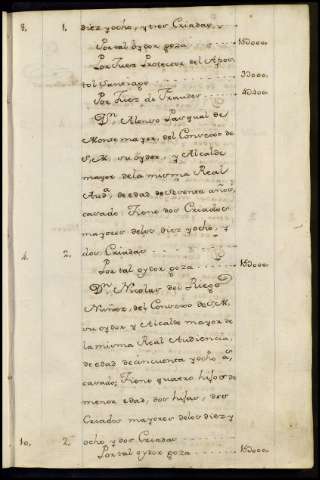 8. 1. diez yocho, y tres Criadas
Por tal oydor goza 18000.
Por Juez Protector del Apos
tol Santiago
Por Juez de Fraudes
Dn. Alonso Pasqual de
Monte mayor, del Consexo de
S.M. su oydor, y Alcalde
mayor de la misma Real
Auda. de edad de setenta años
casado: Tiene dos Criados
mayores delos diez yocho, y
4. 2. dos Criadas
Por tal oydor goza 18000.
Dn. Nicolas del Riego
Nuñez, del Consexo de S.M.
su oydor y Alcalde mayor de
la misma Real Audiencia,
de edad de cincuenta yocho as.
casado; Tiene quatro hijos de
menor edad, dos hijas, dos
Criados mayores delos diez y
10. 2. ocho y dos Criadas
Por tal oydor goza 18000.